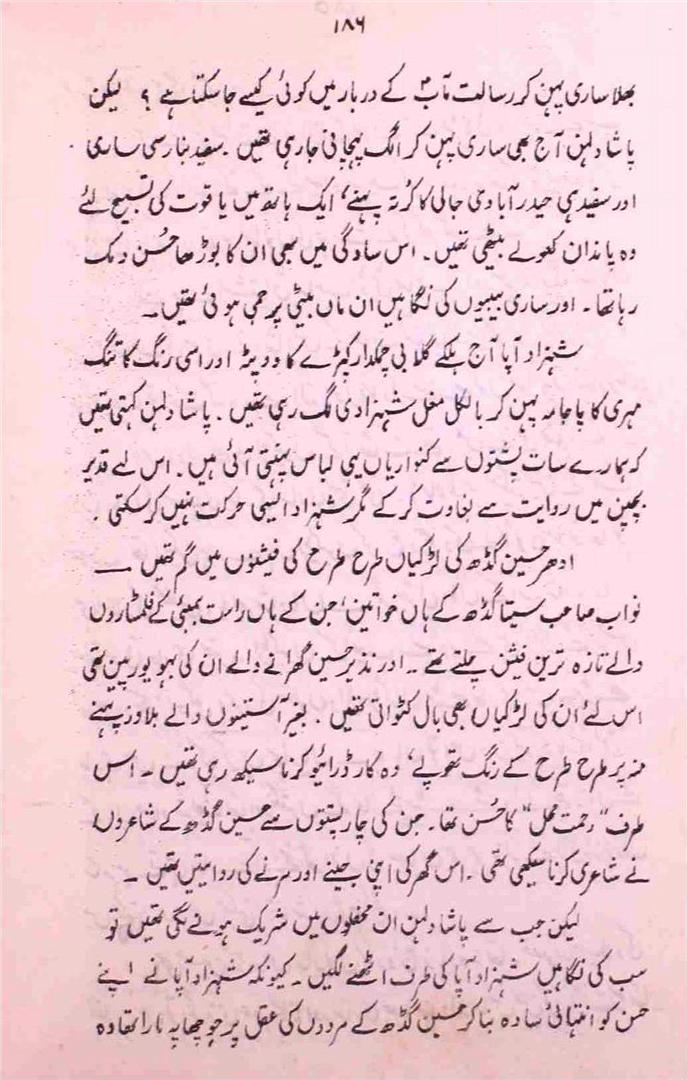 ۱۸۶
بھلا ساری پہن کر رسالت مآبؐ کے دربار میں کوئی کیسے جا سکتا ہے ؟ لیکن
پاشا دلہن آج بھی ساری پہن کر الگ پہچانی جا رہی تھیں ۔ سفید بنارسی ساری
اور سفید ہی حیدرآبادی جالی کا کُرتہ پہنے، ایک ہاتھ میں یاقوت کی تسبیح لئے
وہ پاندان کھولے بیٹھی تھیں ۔ اس سادگی میں بھی ان کا بوڑھا حسن دمک
رہا تھا ۔ اور ساری بیبیوں کی نگاہیں ان ماں بیٹی پر جمی ہوئی تھیں ۔
شہزاد آپا آج ہلکے گلابی چمکدار کپڑے کا دوپٹہ اور اسی رنگ کا تنگ
مہری کا پاجامہ پہن کر بالکل مغل شہزادی لگ رہی تھیں ۔ پاشا دلہن کہتی تھیں
کہ ہمارے سات پشتوں سے کنواریاں یہی لباس پہنتی آئی ہیں ۔ اس لیے قدیر
بچپن میں روایت سے بغاوت کر کے مگر شہزاد ایسی حرکت نہیں کر سکتی ۔
ادھر حسین گڈھ کی لڑکیاں طرح طرح کی فیشنوں میں گم تھیں ــــ
نواب صاحب سیتا گڈھ کے ہاں خواتین، جن کے ہاں راست بمبئی کے فلمسٹاروں
والے تازہ ترین فیشن چلتے تھے ۔۔ اور نذیر حسین گھرانے والے ان کی بہو یورپین تھی
اس لئے ان کی لڑکیاں بھی بال کٹواتی تھیں ۔ بغیر آستینوں والے بلاوز پہنے
منہ پر طرح طرح کے رنگ تھوپے، وہ کار ڈرائیو کرنا سیکھ رہی تھیں ۔ اس
طرف "رحمت محل" کا حُسن تھا ۔ جن کی چار پشتوں سے حسین گڈھ کے شاعروں
نے شاعری کرنا سیکھی تھی ۔ اس گھر کی اپنی جینے اور مرنے کی روایتیں تھیں ۔
لیکن جب سے پاشا دلہن ان محفلوں میں شریک ہونے لگی تھیں تو
سب کی نگاہیں شہزاد آپا کی طرف اٹھنے لگیں ۔ کیونکہ شہزاد آپا نے اپنے
حسن کو انتہائی سادہ بنا کر حسین گڈھ کے مردوں کی عقل پر جو چھاپہ مارا تھا وہ